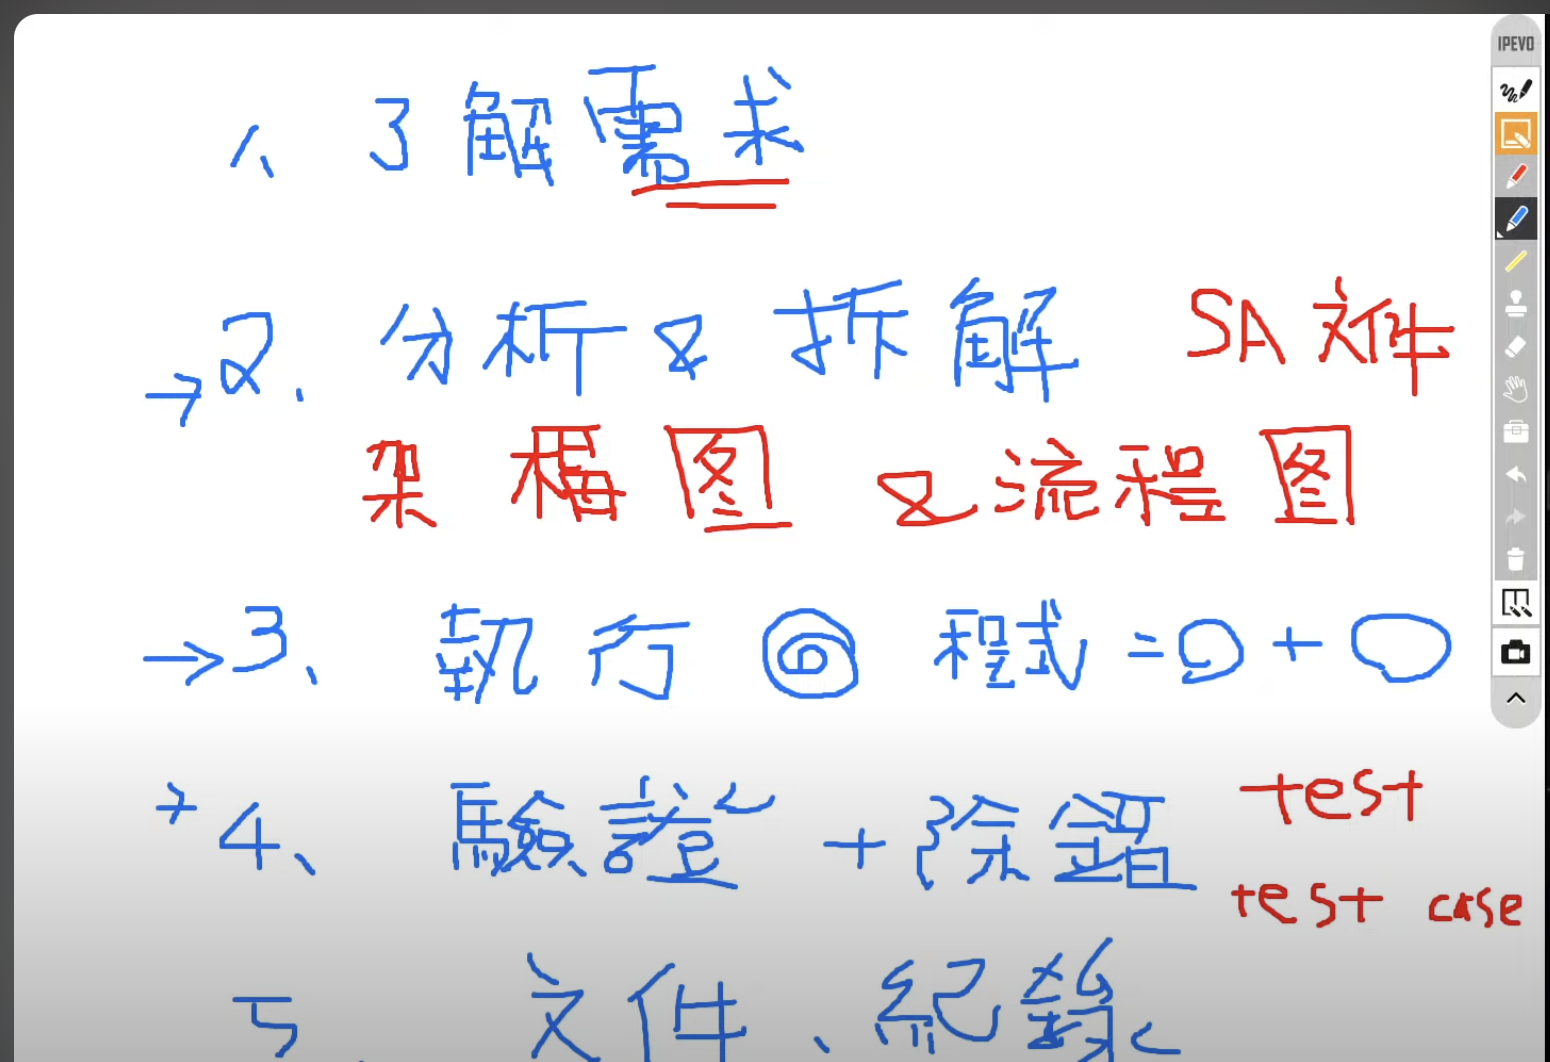 IPEVO
1、了解需求
→2. 分析 & 拆解 SA文件
架構图 & 流程图
→3、執行 程式 = O + O
→4、驗證 + 除錯 test
test case
5. 文件、紀錄